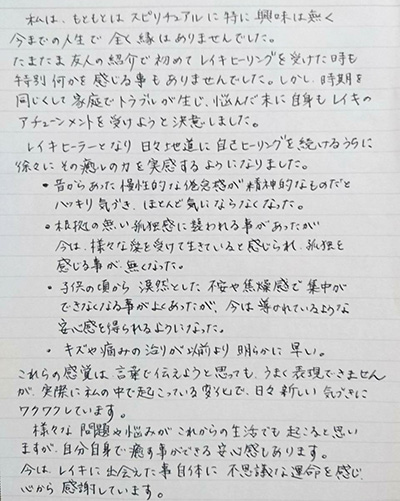 私は、もともとはスピリチュアルに特に興味は無く
今までの人生で全く縁はありませんでした。
たまたま友人の紹介で初めてレイキヒーリングを受けた時も
特別何かを感じる事もありませんでした。しかし、時期を
同じくして家庭でトラブルが生じ、悩んだ末に自身もレイキの
アチューンメントを受けようと決意しました。
レイキヒーラーとなり日々地道に自己ヒーリングを続けるうちに
徐々にその癒しの力を実感するようになりました。
・昔からあった慢性的な倦怠感が精神的なものだと
ハッキリ気づき、ほとんど気にならなくなった。
・根拠の無い孤独感に襲われる事があったが
今は、様々な愛を受けて生きていると感じられ、孤独を
感じる事が無くなった。
・子供の頃から漠然とした不安や焦燥感で集中が
できなくなる事がよくあったが、今は導かれているような
安心感を得られるようになった。
・キズや痛みの治りが以前より明らかに早い。
これらの感覚は言葉で伝えようと思っても、うまく表現できません
が、実際に私の中で起こっている変化で、日々新しい気づきに
ワクワクしています。
様々な問題や悩みがこれからの生活でも起こると思い
ますが、自分自身で癒す事ができる安心感もあります。
今は、レイキに出会えた事自体に不思議な運命を感じ、
心から感謝しています。